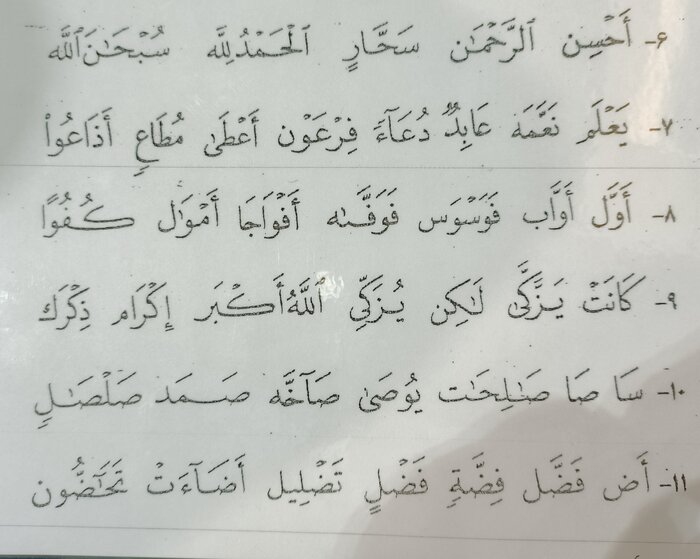 ٦- أَحْسِن ٱلرَّحْمَٰن سَحَّارٍ ٱلْحَمْدُلِلَّه سُبْحَٰنَ ٱللَّه
٧- يَعْلَم نَعَّمَهُ عَابِدٌ دُعَآءَ فِرْعَوْن أَعْطَىٰ مُطَاعٍ أَذَاعُوا۟
٨- أَوَّل أَوَّاب فَوَسْوَس فَوَفَّىٰه أَفْوَاجَا أَمْوَٰل كُفُوًا
٩- كَانَتْ يَزَّكَّىٰ لَٰكِن يُزَكِّي ٱللَّهُ أَكْبَر إِكْرَام ذِكْرَك
١٠- سَا صَا صَٰلِحَٰت يُوصَىٰ صَآخَّه صَمَد صَلْصَٰلٍ
١١- أَض فَضَّل فِضَّةٍ فَضْلٍ تَضْلِيل أَضَآءَتْ تَحَٰٓضُّون